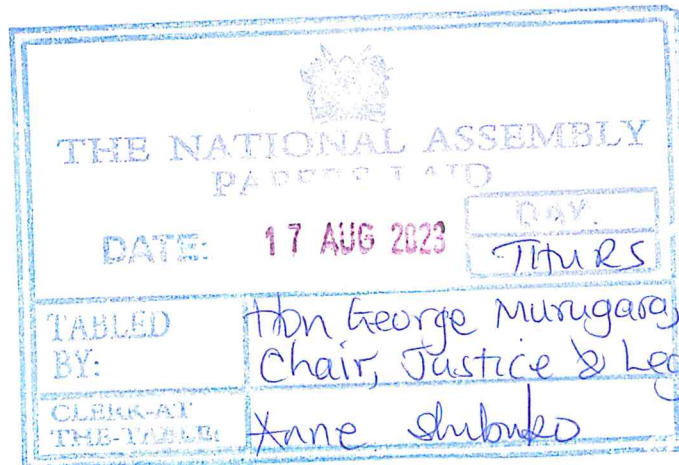 THE NATIONAL ASSEMBLY
PAPERS LAID
DATE: 17 AUG 2023
DAY.
THURS
TABLED BY:
Hon George Murugara,
Chair, Justice & Leg
CLERK-AT THE-TABLE:
Anne